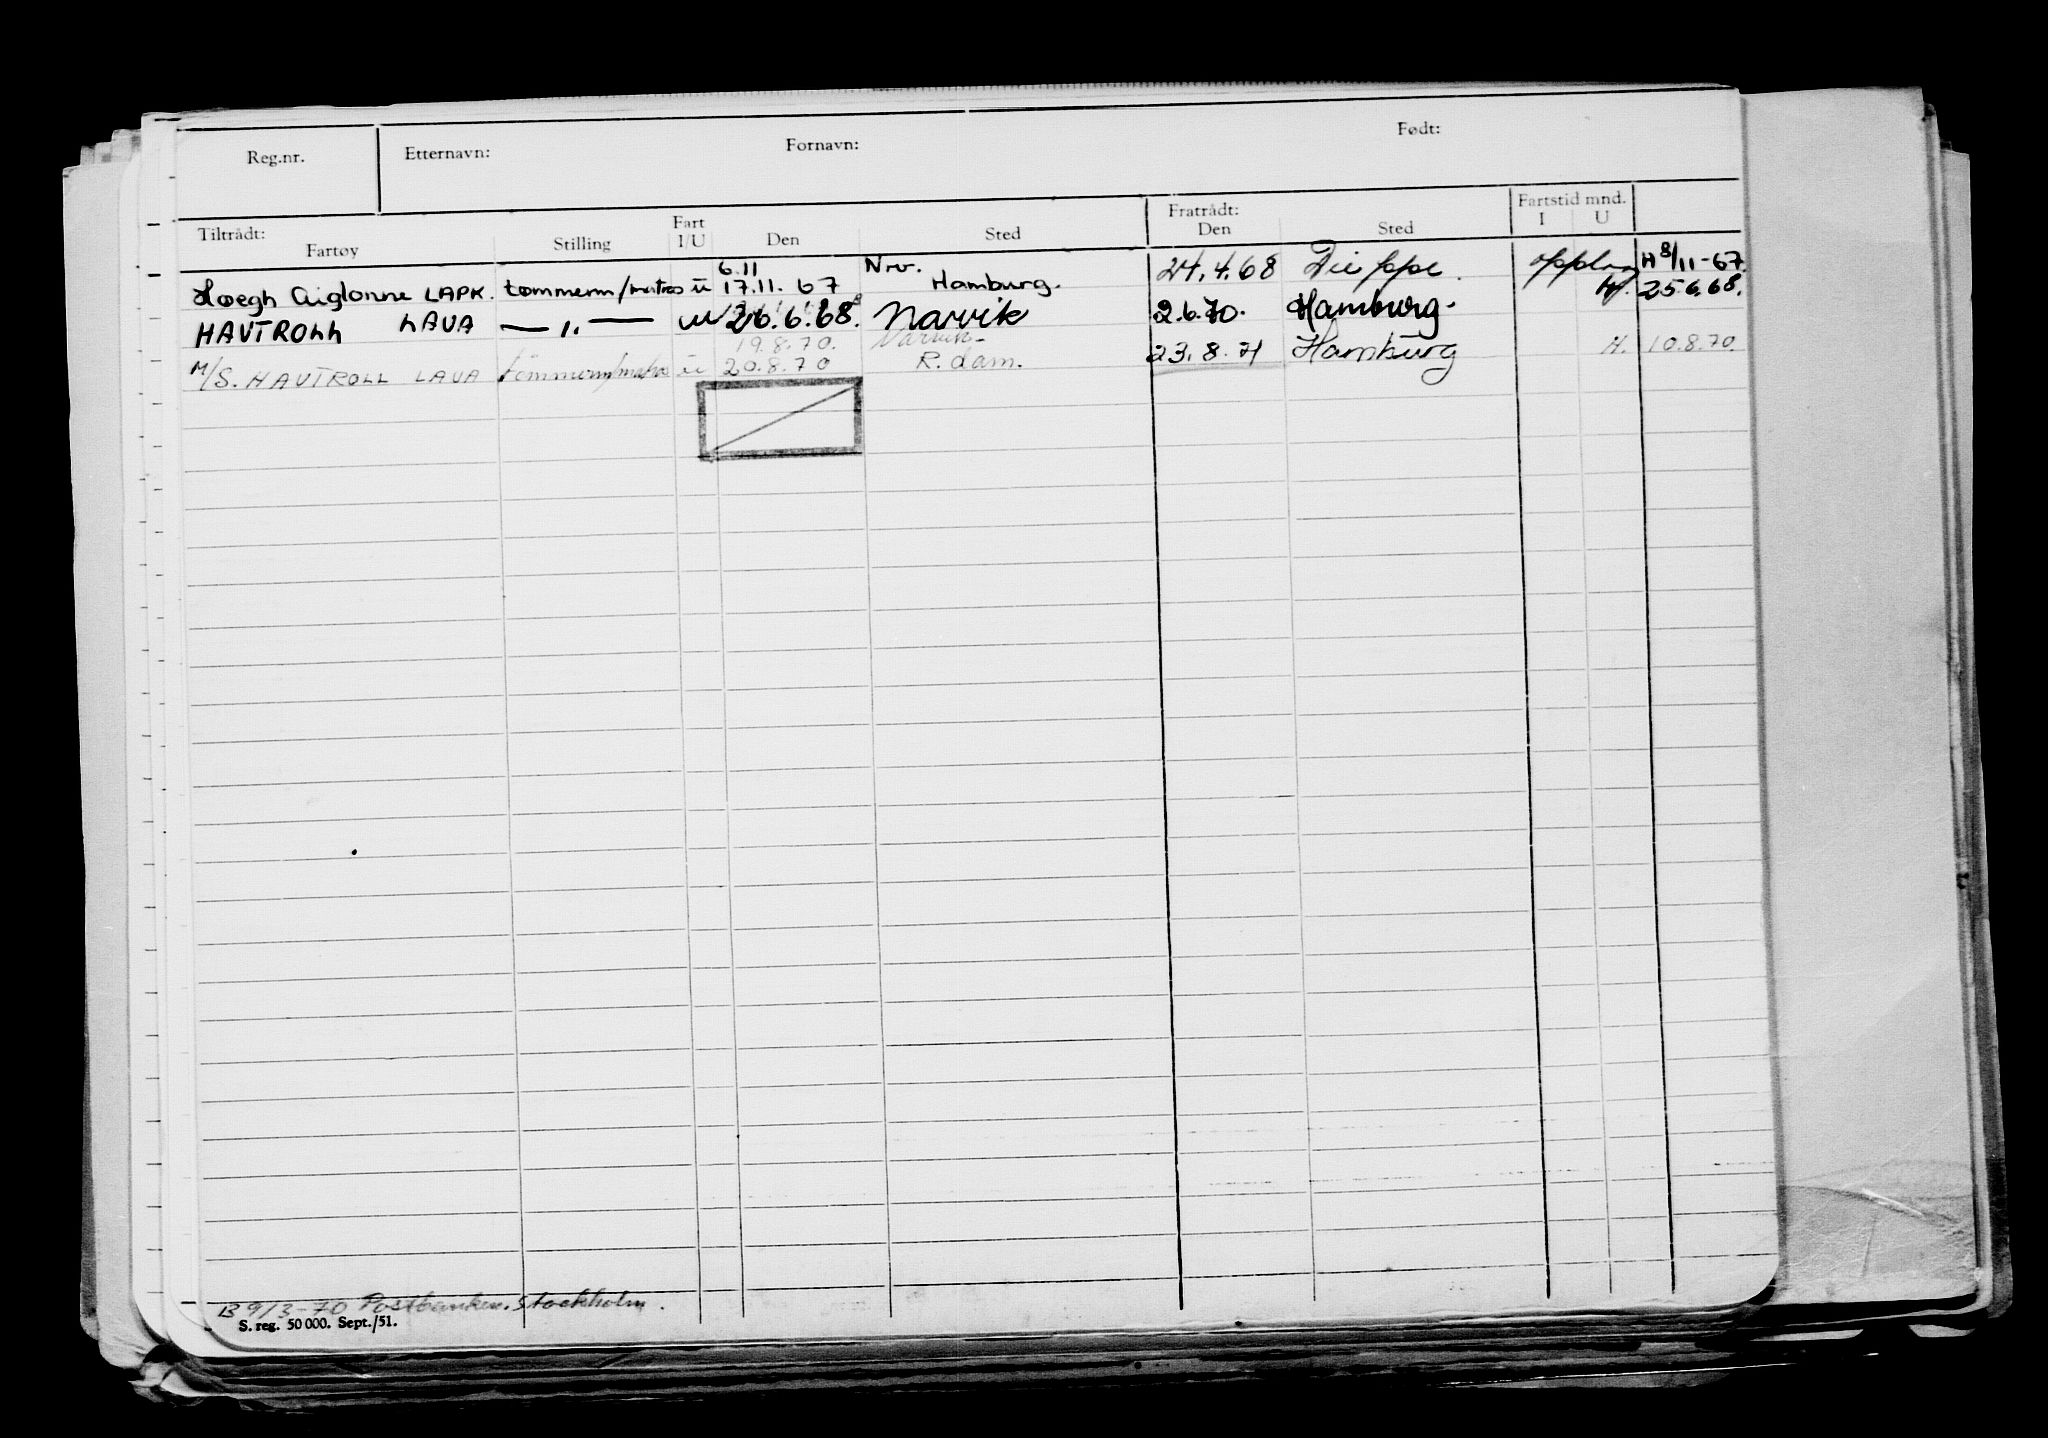 Reg.nr. Etternavn: Fornavn: Født:
Tiltrådt: Fart Fratrådt: Fartstid mnd.
Fartøy Stilling I/U Den Sted Den Sted I U
6.11 Nrv.
Hoegh Aiglonne LAPK. tømmerm/matros u 17.11.67 Hamburg. 24.4.68 Dieppe. H 8/11-67.
HAVTROLL LAVA —„— u 26.6.68. Narvik 2.6.70. Hamburg. H. 25.6.68.
19.8.70. Narvik-
M/S. HAVTROLL LAVA tømmerm/matros u 20.8.70 R.dam. 23.8.71 Hamburg H. 10.8.70.
B 9/3-70 Postbanken. Stockholm.
S. reg. 50 000. Sept./51.